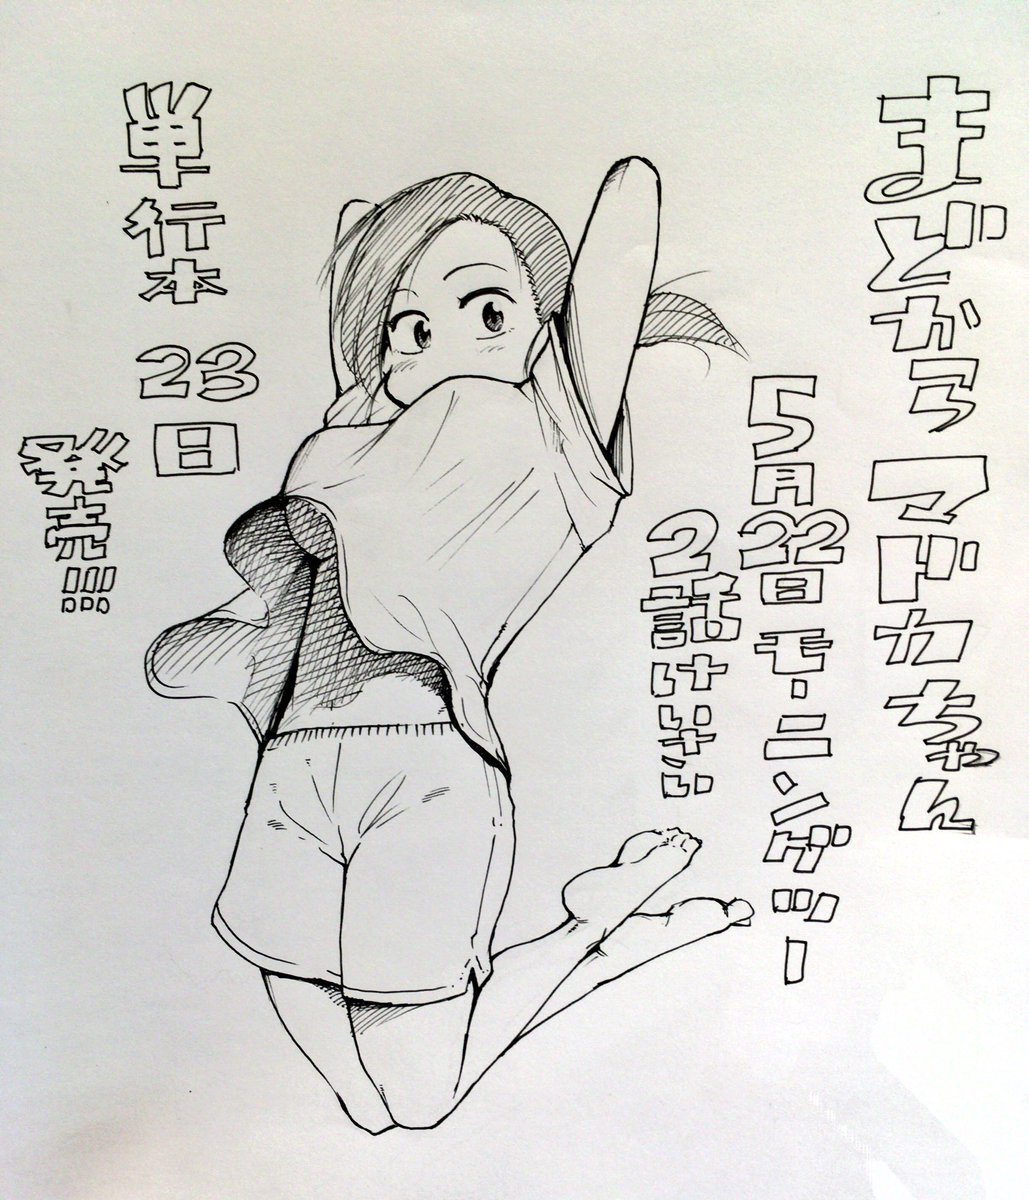 まどから マドカちゃん
5月22日 モーニングツー
2話けいさい
単行本 23日
発売!!!!